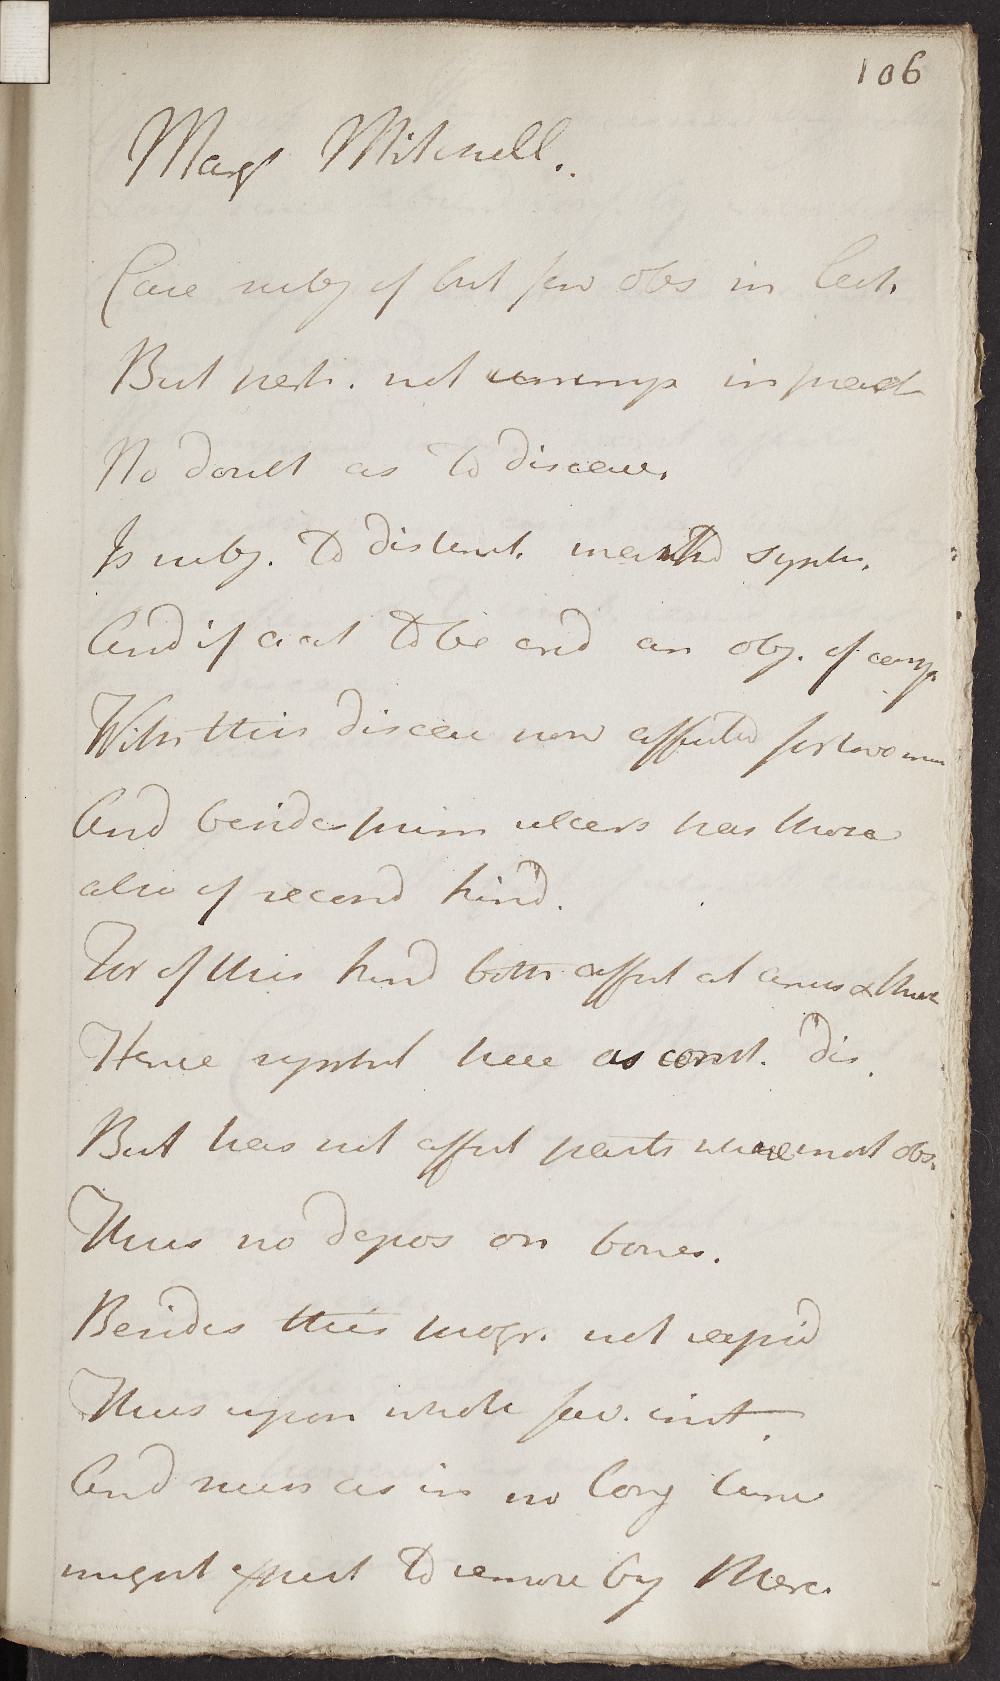 106
Margt Mitchell.
Case subj of but few obs in Lect.
But partr. not uncomp in pract
No doubt as to disease.
Is subj. to distinct. marked sympt.
And if act to be and an obj. of comp
With this disease now affected for two mon
And besides prim ulcers has those
also of second kind.
For of this kind both affect at anus & throat
Hence sympt here as const. dis.
But has not affect parts where most obs.
Thus no depos on bones.
Besides this progr. not rapid
Thus upon whole fav. inst.
And such as in no long time
might expect to remove by Merc.